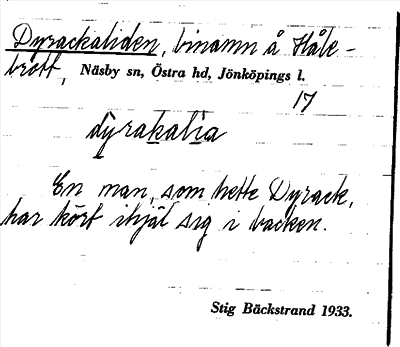 Dyrackaliden, binamn å Håle-
brott, Näsby sn, Östra hd, Jönköpings l.
17
dyrakalia
En man, som hette Dyrack,
har kört ihjäl sig i backen.
Stig Bäckstrand 1933.